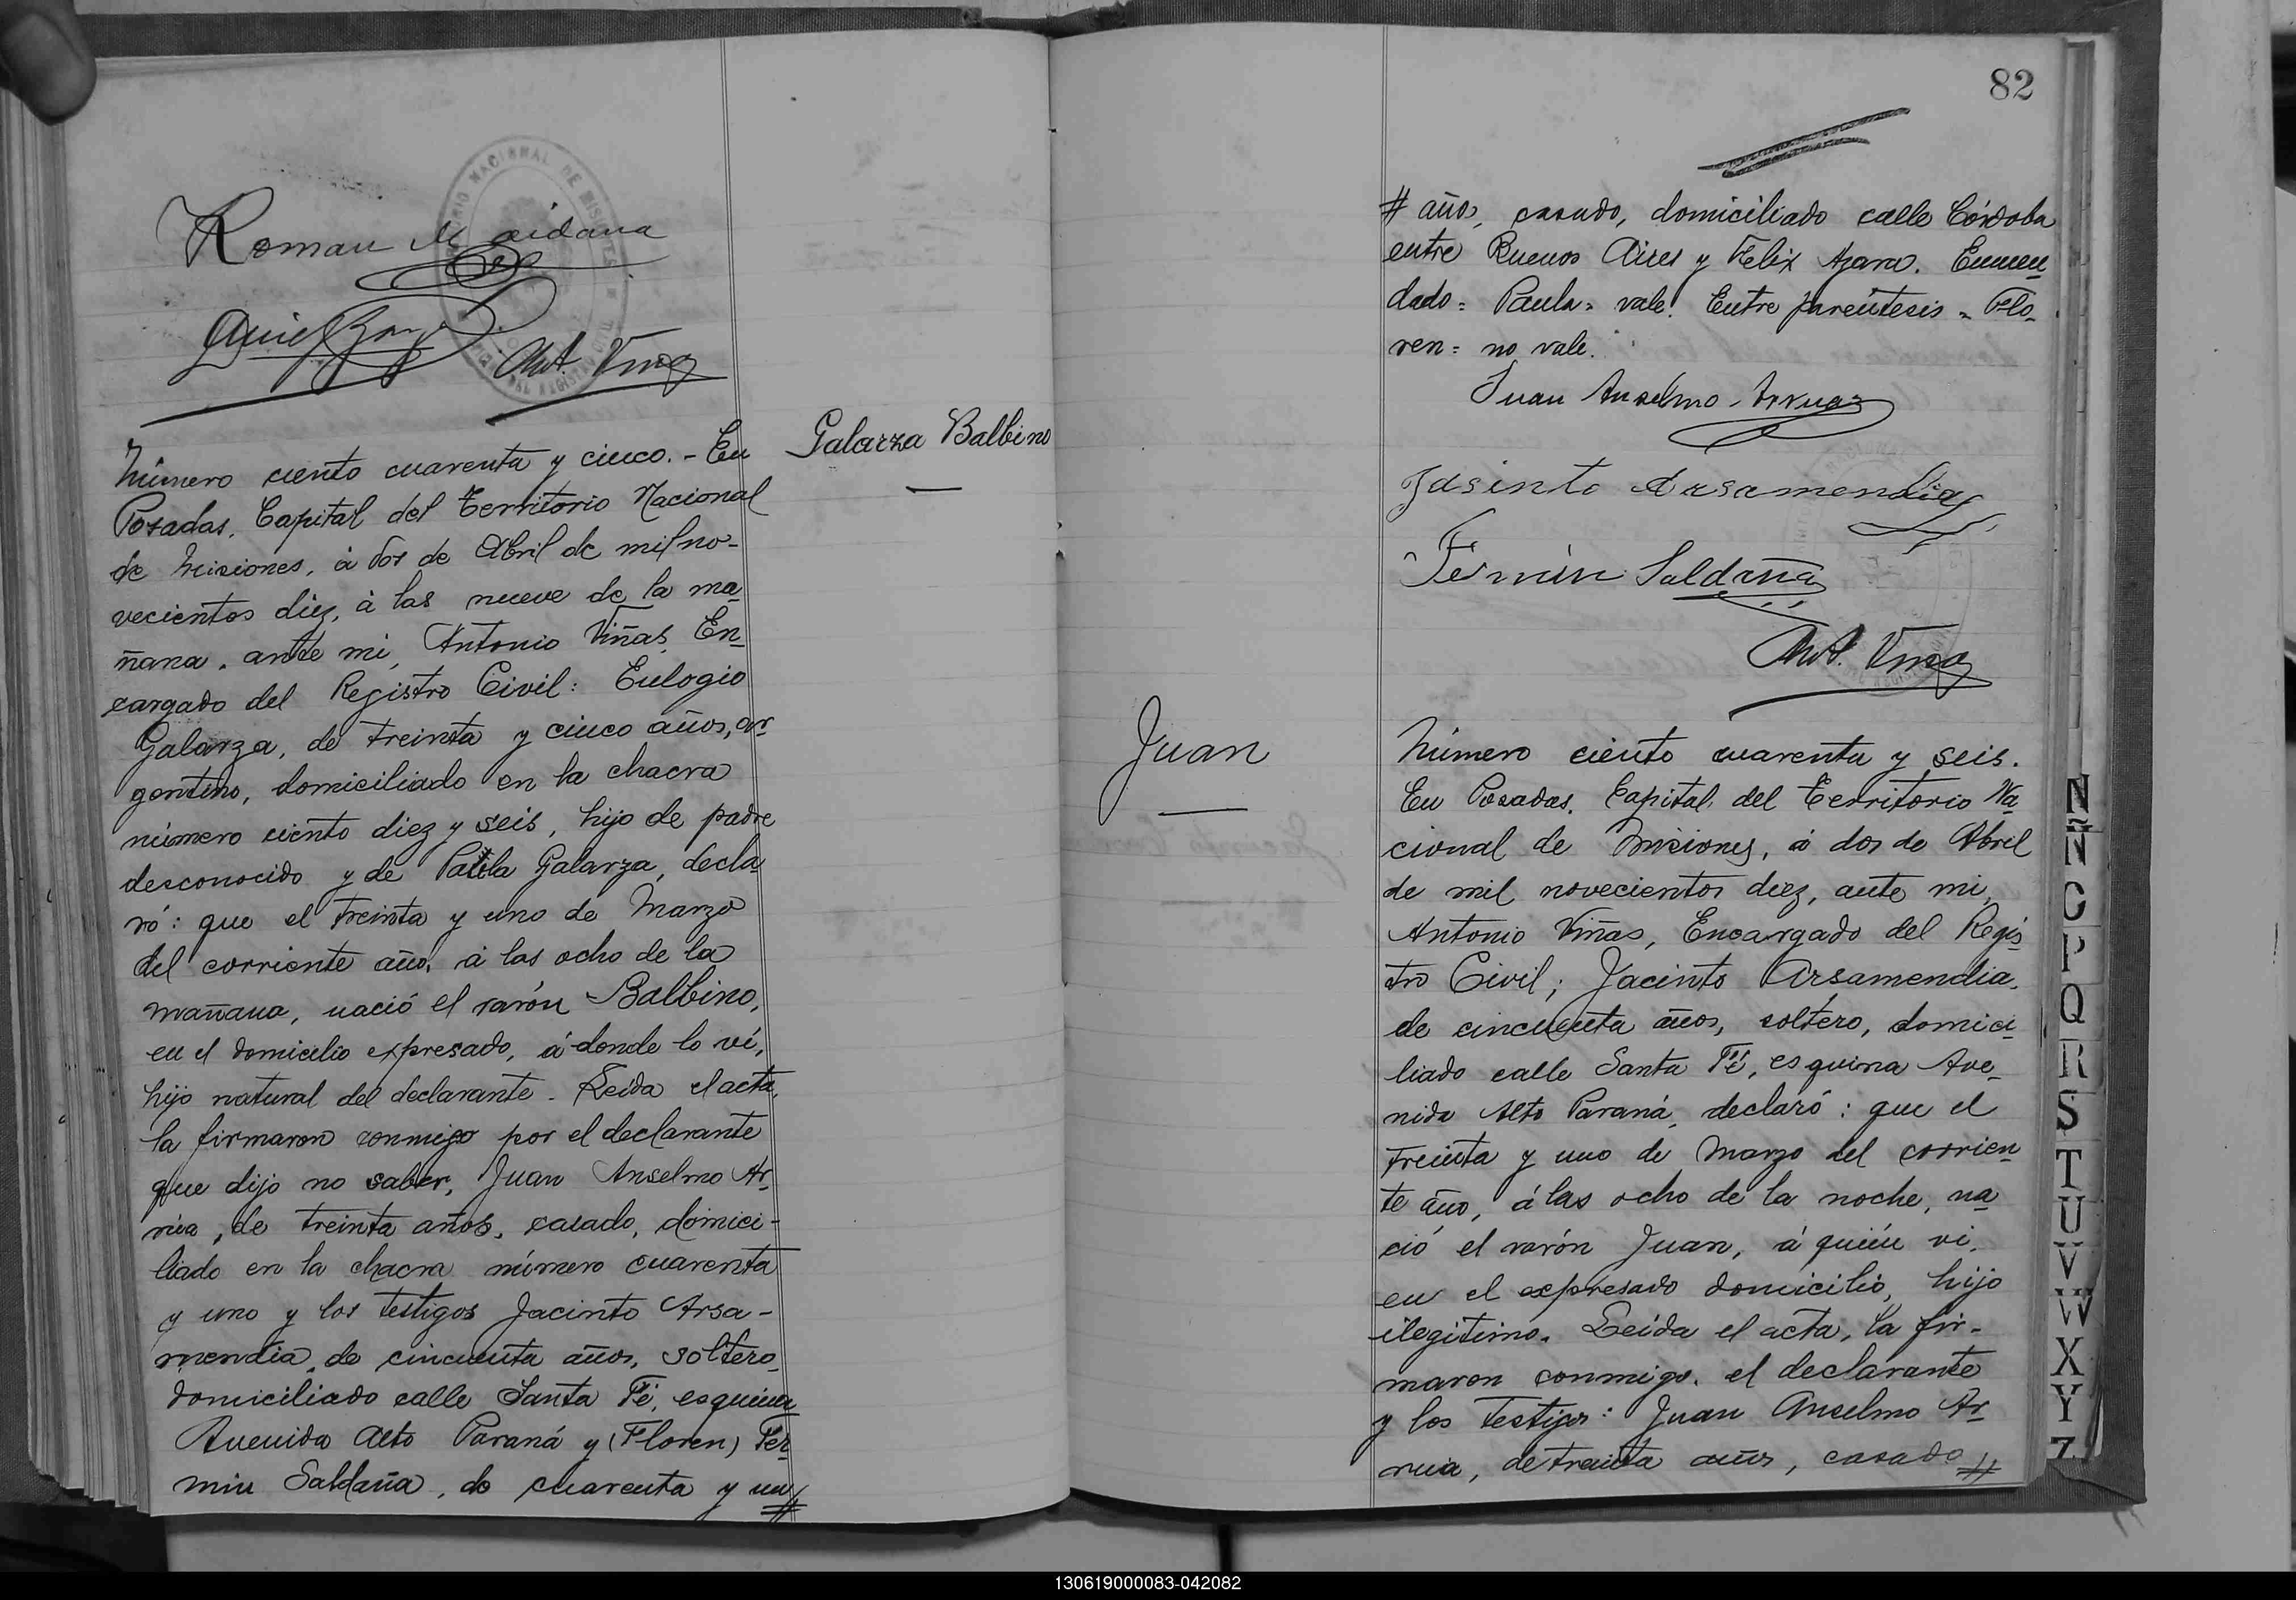 Roman Maidana
Ant. Viñas
Galarza Balbino
Número ciento cuarenta y cinco. - En
Posadas, Capital del Territorio Nacional
de Misiones, á dos de Abril de mil no-
vecientos diez, á las nueve de la ma
ñana, ante mi, Antonio Viñas, En
cargado del Registro Civil: Eulogio
Galarza, de treinta y cinco años, ar
gentino, domiciliado en la chacra
número ciento diez y seis, hijo de padre
desconocido y de Paula Galarza, decla
ró: que el treinta y uno de Marzo
del corriente año, á las ocho de la
mañana, nació el varón Balbino,
en el domicilio expresado, á donde lo ví,
hijo natural del declarante. Leida el acta,
la firmaron conmigo por el declarante
que dijo no saber, Juan Anselmo Ar
rúa, de treinta años, casado, domici-
liado en la chacra número cuarenta
y uno y los testigos Jacinto Arsa-
mendia, de cincuenta años, soltero,
domiciliado calle Santa Fé, esquina
Avenida Alto Paraná y (Floren) Fer
min Saldaña, de cuarenta y un #
82
# años, casado, domiciliado calle Córdoba
entre Buenos Aires y Felix Azara. Enmen
dado = Paula = vale. Entre paréntesis = Flo-
ren = no vale.
Juan Anselmo Arrua
Jasinto Arsamendia
Fermin Saldaña
Ant. Viñas
Juan
Número ciento cuarenta y seis.
En Posadas, Capital del Territorio Na
cional de Misiones, á dos de Abril
de mil novecientos diez, ante mi,
Antonio Viñas, Encargado del Regis
tro Civil; Jacinto Arsamendia,
de cincuenta años, soltero, domici
liado calle Santa Fé, esquina Ave-
nida Alto Paraná, declaró: que el
treinta y uno de Marzo del corrien
te año, á las ocho de la noche, na
ció el varón Juan, á quién vi,
en el expresado domicilio, hijo
ilegitimo. Leida el acta, la fir-
maron conmigo, el declarante
y los testigos: Juan Anselmo Ar
rua, de treinta años, casado #
N
Ñ
O
P
Q
R
S
T
U
V
W
X
Y
Z
130619000083-042082